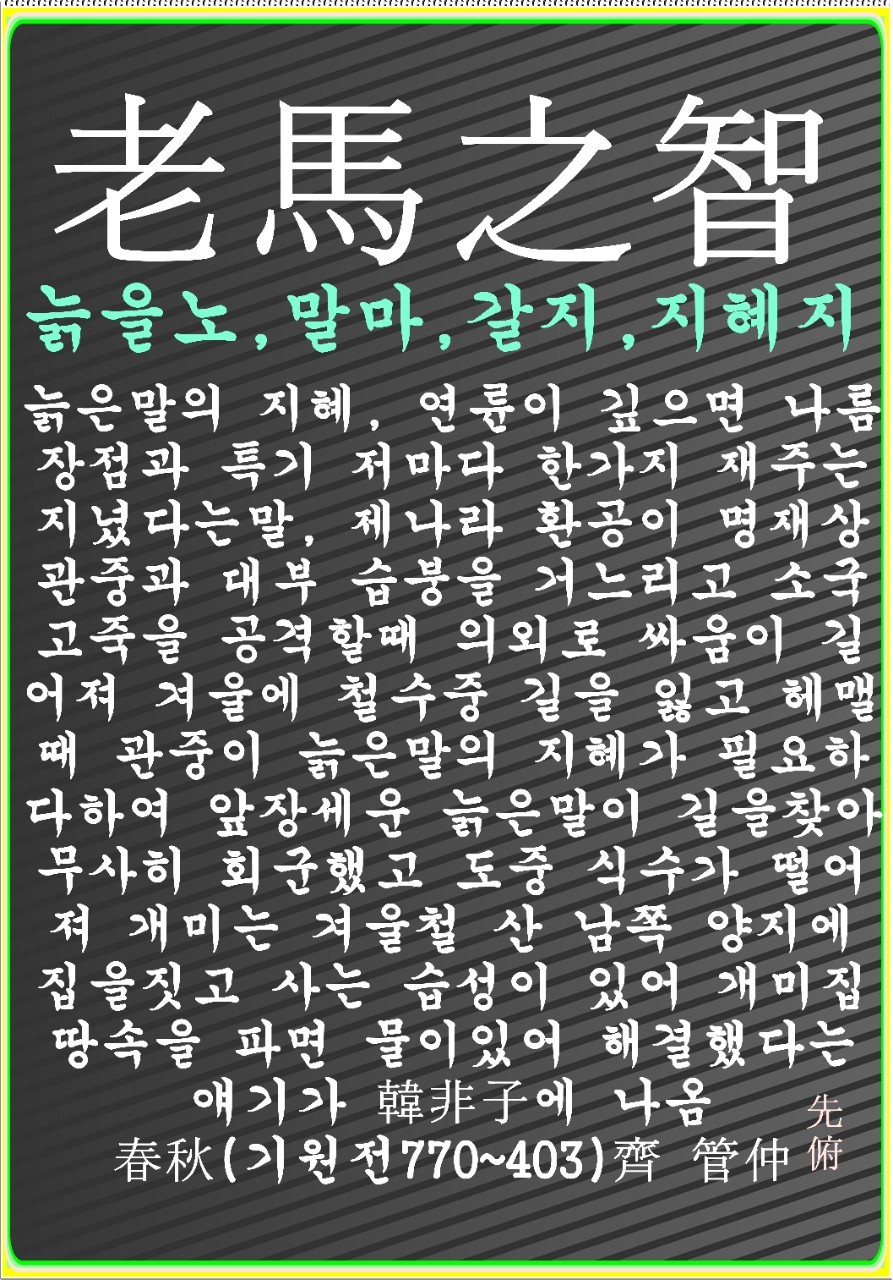 老馬之智
늙을노,말마,갈지,지혜지
늙은말의 지혜, 연륜이 깊으면 나름
장점과 특기 저마다 한가지 재주는
지녔다는말, 제나라 환공이 명재상
관중과 대부 습붕을 거느리고 소국
고죽을 공격할때 의외로 싸움이 길
어져 겨울에 철수중 길을 잃고 헤맬
때 관중이 늙은말의 지혜가 필요하
다하여 앞장세운 늙은말이 길을찾아
무사히 회군했고 도중 식수가 떨어
져 개미는 겨울철 산 남쪽 양지에
집을짓고 사는 습성이 있어 개미집
땅속을 파면 물이있어 해결했다는
얘기가 韓非子에 나옴
春秋(기원전770~403)齊 管仲
先俯